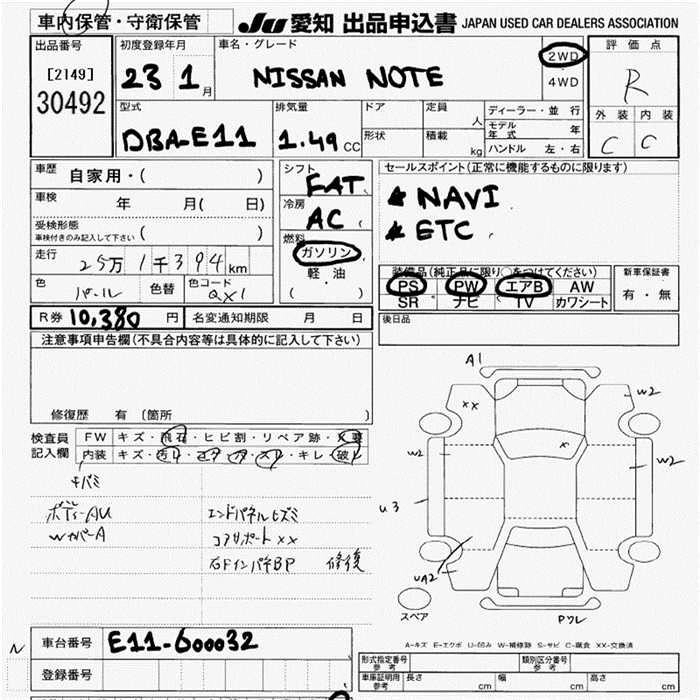 車内保管・守衛保管
Ju 愛知 出品申込書 JAPAN USED CAR DEALERS ASSOCIATION
出品番号
[2149]
30492
初度登録年月
23 1 月
車名・グレード
NISSAN NOTE
2WD
4WD
評価点
R
外装 内装
C C
型式
DBA-E11
排気量
1.49 CC
ドア
形状
定員
人
積載
kg
ディーラー・並行
モデル年式 年
ハンドル 左・右
車歴
自家用・( )
車検
年 月( 日)
受検形態
車検付きのみ記入して下さい ( )
走行
25万1千394km
色
パール
色替
色コード
QX1
シフト
FAT
冷房
AC
燃料
ガソリン
軽・油
( )
セールスポイント(正常に機能するものに限ります)
★ NAVI
★ ETC
装備品(純正品に限り○をつけてください)
PS PW エアB AW
SR ナビ TV カワシート
新車保証書
有・無
R券 10,380 円
名変通知期限 月 日
後日品
注意事項申告欄(不具合内容等は具体的に記入して下さい)
修復歴 有 (箇所 )
検査員
記入欄
FW キズ・飛石・ヒビ割・リペア跡・X要
内装 キズ・汚レ・コゲ・穴・スレ・キレ・破レ
キバミ
ボディーAU
WカバーA
エンドパネルヒズミ
コアサポートXX
右FインパネBP 修復
A1
XX
W2
X
W2
W2
U3
UA2
スペア
Pワレ
A-キズ E-エクボ U-凹み W-補修跡 S-サビ C-腐食 XX-交換済
N
車台番号
E11-600032
登録番号
形式指定番号
参考
類別区分番号
参考
車庫証明用
参考
長さ cm
幅 cm
高さ cm